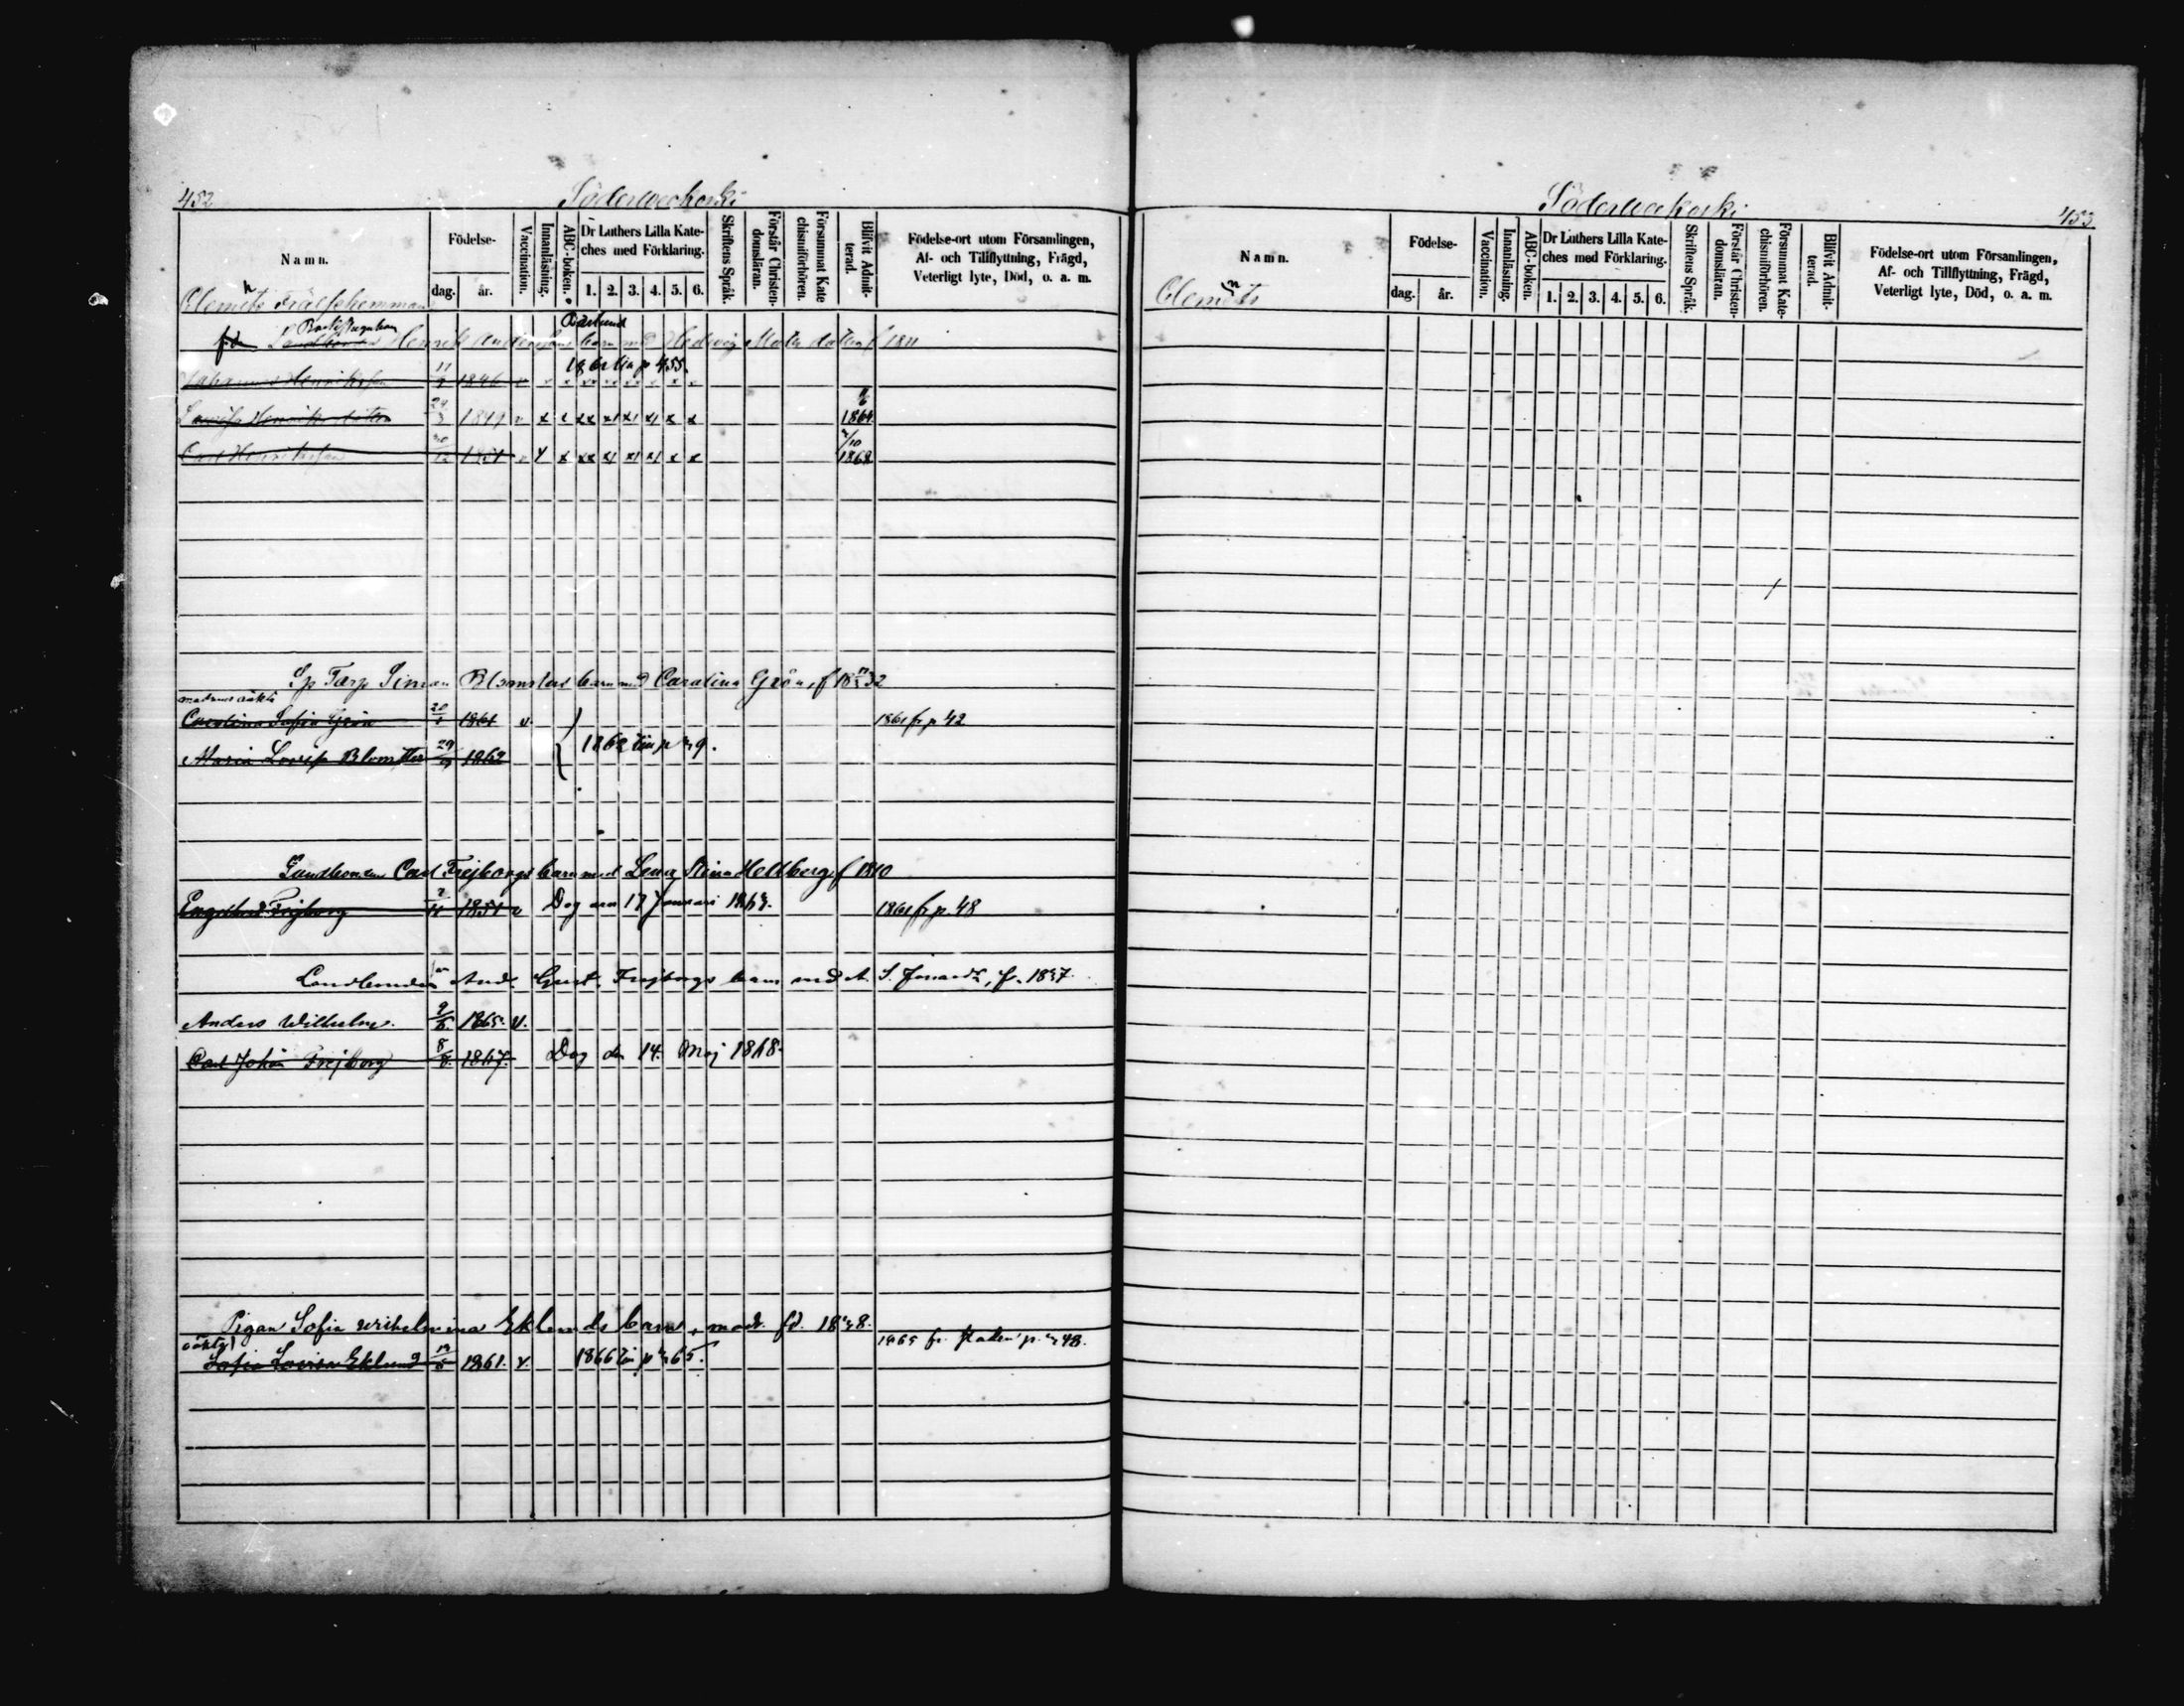 452
Söderveckoski
Namn.
Födelse-
dag.
år.
Vaccination.
Innanläsning.
ABC-boken.
Dr Luthers Lilla Kate-
ches med Förklaring.
1. 2. 3. 4. 5. 6.
Skriftens Språk.
Förstår Christen-
domsläran.
Försummat Kate
chismiförhören.
Blifvit Admit-
terad.
Födelse-ort utom Församlingen,
Af- och Tillflyttning, Frägd,
Veterligt lyte, Död, o. a. m.
Clements Frälsehemman
Henrik barn med Hedvig f 1811
Johannes Henriksson 11 1846 v 1861 p 455.
Lovisa Henriksdotter 24/3 1849 v x x xx x x x x x 1864
Carl Henriksson 1851 v x x xx x x x x x /10 1868
Sp Torp Simon Blomsters barn med Carolina Grön, f 18 32
modrens oäkta
Carolina Sofia Grön 20 1861 v. 1861 fr p 42
Maria Lovisa Blomster 29 1862 1862 till p 49.
Landbonden Carl Frejborgs barn med Lena Stina Hellberg f 1810
Engelbert Frejborg 1851 v Dog den 17 Januari 1863. 1861 fr p. 48
Landbonden And. Gust. Frejborgs barn med A. S. f. 1837.
Anders Wilhelm. 9/6 1865. v.
Carl Johan Frejborg 8/8 1867. Dog den 14. Maj 1868.
Pigan Sofia Wilhelmina Eklunds barn, mod. fd. 1838.
oäkta
Sofia Lovisa Eklund 19/5 1861. v. 1866 till p 465. 1865 fr. staden p. 448.
Söderveckoski
453
Namn.
Födelse-
dag.
år.
Vaccination.
Innanläsning.
ABC-boken.
Dr Luthers Lilla Kate-
ches med Förklaring.
1. 2. 3. 4. 5. 6.
Skriftens Språk.
Förstår Christen-
domsläran.
Försummat Kate-
chismiförhören.
Blifvit Admit-
terad.
Födelse-ort utom Församlingen,
Af- och Tillflyttning, Frägd,
Veterligt lyte, Död, o. a. m.
Clements